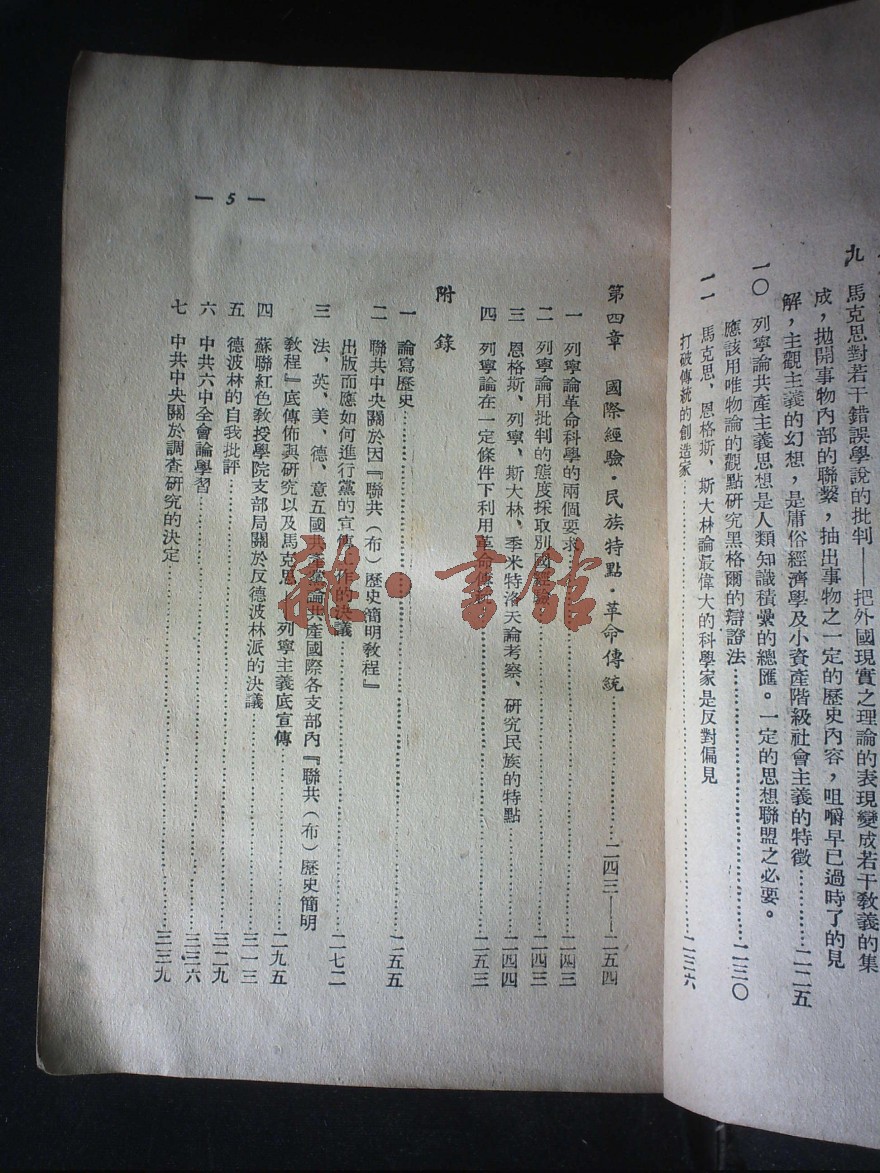 九　馬克思對若干錯誤學說的批判——把外國現實之理論的表現變成若干教義的集
成，拋開事物內部的聯繫，抽出事物之一定的歷史內容，咀嚼早已過時了的見
解，主觀主義的幻想，是庸俗經濟學及小資產階級社會主義的特徵…………二二五
一〇　列寧論共產主義思想是人類知識積彙的總匯。一定的思想聯盟之必要。
應該用唯物論的觀點研究黑格爾的辯證法…………二三〇
一一　馬克思、恩格斯、斯大林論最偉大的科學家是反對偏見
打破傳統的創造家…………二三六
第四章　國際經驗·民族特點·革命傳統…………二四三——二五四
一　列寧論革命科學的兩個要求…………二四三
二　列寧論用批判的態度採取別國經驗…………二四三
三　恩格斯、列寧、斯大林、季米特洛夫論考察、研究民族的特點…………二四四
四　列寧論在一定條件下利用革命傳統…………二五三
附錄
一　論寫歷史…………二五五
二　聯共中央關於因『聯共（布）歷史簡明教程』
出版而應如何進行黨的宣傳工作的決議…………二七二
三　法、英、美、德、意五國共產黨論共產國際各支部內『聯共（布）歷史簡明
教程』底傳佈與研究以及馬克思·列寧主義底宣傳…………二九五
四　蘇聯紅色教授學院支部局關於反德波林派的決議…………三一三
五　德波林的自我批評…………三二九
六　中共六中全會論學習…………三三六
七　中共中央關於調查研究的決定…………三三九
— 5 —
龍·書館